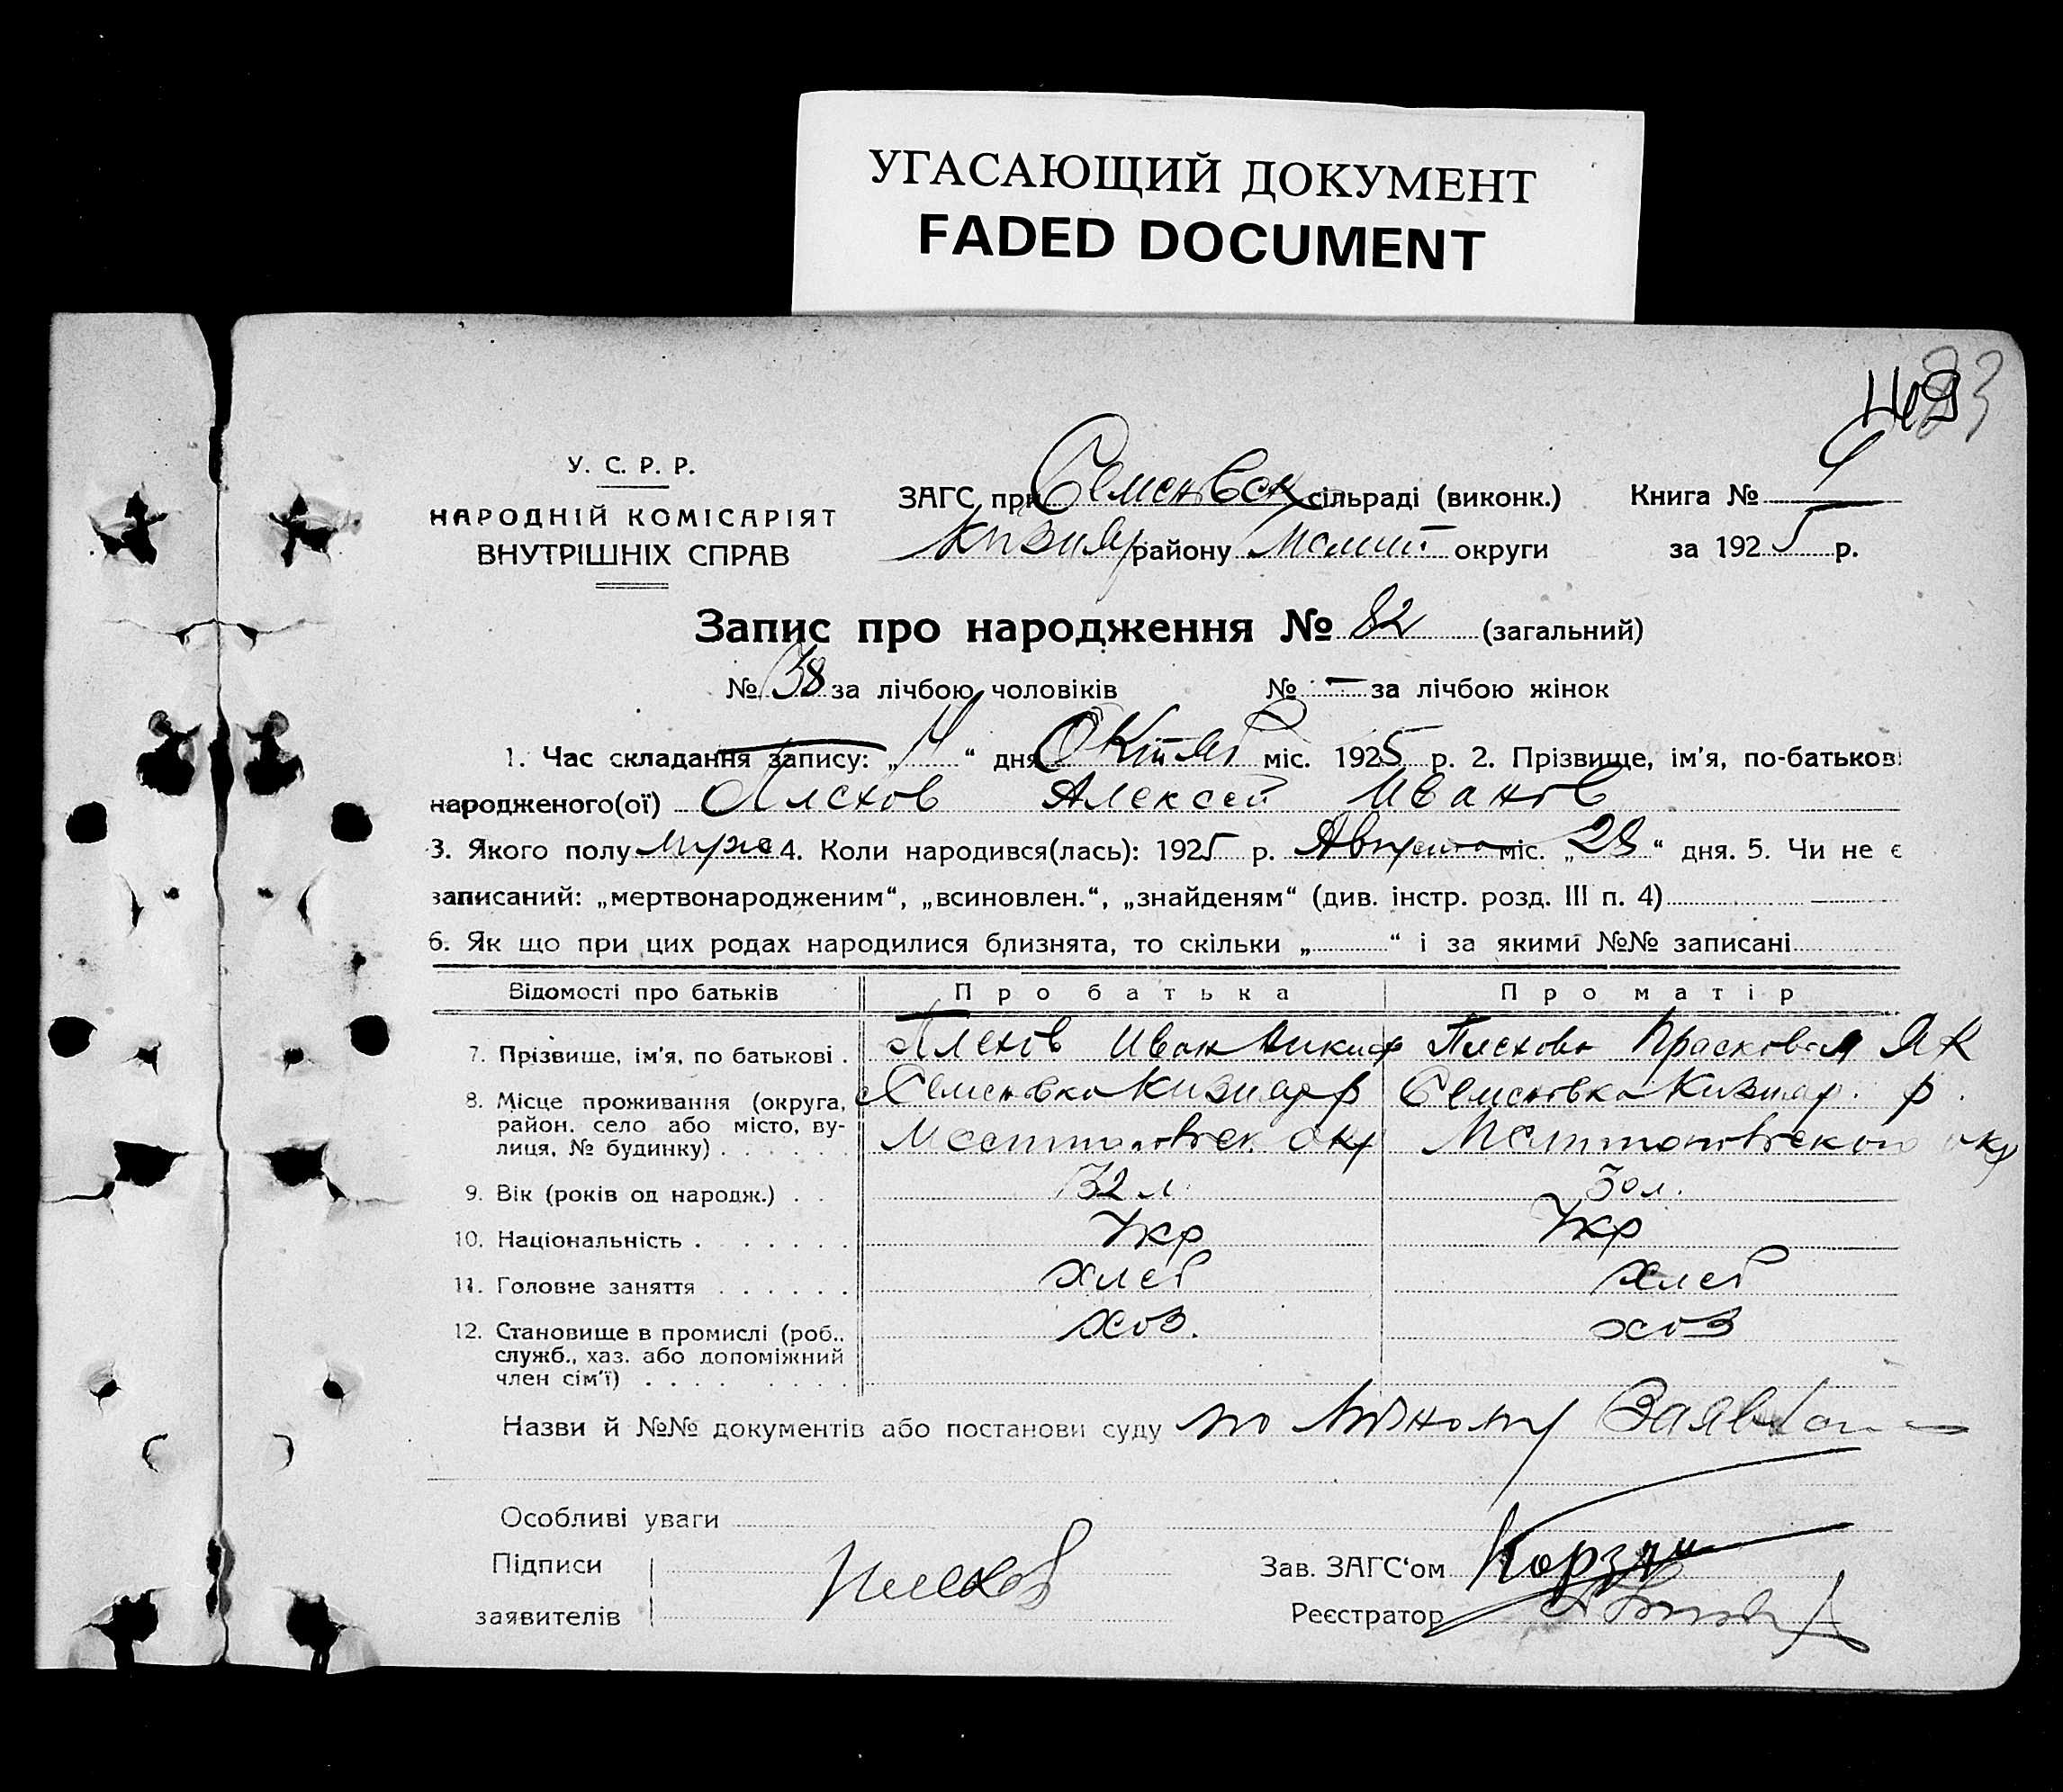 УГАСАЮЩИЙ ДОКУМЕНТ
FADED DOCUMENT
У. С. Р. Р.
НАРОДНІЙ КОМІСАРІЯТ
ВНУТРІШНІХ СПРАВ
ЗАГС при Семеновск сільраді (виконк.)
Кизияр району Мелит округи
Книга №
за 1925 р.
Запис про народження № 82 (загальний)
№ 38 за лічбою чоловіків № — за лічбою жінок
1. Час складання запису: „ “ дня Октяб міс. 1925 р. 2. Прізвище, ім'я, по-батькові
народженого(ої) Плехов Алексей Иванов
3. Якого полу муже 4. Коли народився(лась): 1925 р. Августа міс. „28“ дня. 5. Чи не є
записаний: „мертвонародженим“, „всиновлен.“, „знайденям“ (див. інстр. розд. III п. 4)
6. Як що при цих родах народилися близнята, то скільки „ “ і за якими №№ записані
Відомості про батьків Про батька Про матір
7. Прізвище, ім'я, по батькові . Плехов Иван Никиф Плехова Прасковья Як
8. Місце проживання (округа, район, село або місто, ву-
лиця, № будинку) . . . . . . Семеновка Кизияр р Семеновка Кизияр. р.
Мелитопольск окр Мелитопольской окр
9. Вік (років од народж.) . . 32 л. 30 л.
10. Національність . . . . . . . Укр Укр
11. Головне заняття . . . . . . хлеб хлеб
12. Становище в промислі (роб., хоз. хоз
служб., хаз. або допоміжний
член сім'ї) . . . . . . . . .
Назви й №№ документів або постанови суду по
Особливі уваги
Підписи
заявителів Плехов
Зав. ЗАГС'ом
Реєстратор